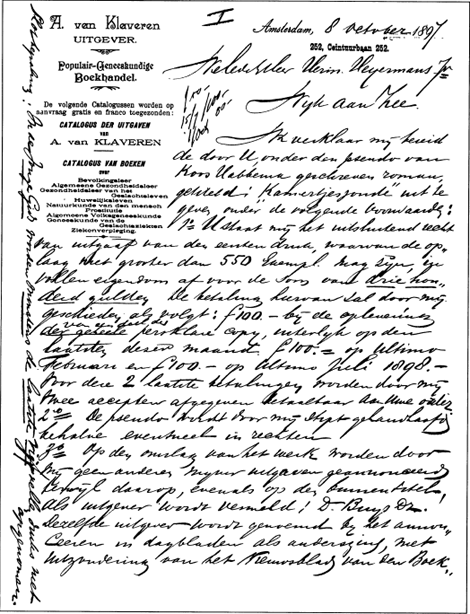 I
A. van Klaveren
UITGEVER.
Populair-Geneeskundige
Boekhandel.
De volgende Catalogussen worden op
aanvraag gratis en franco toegezonden:
CATALOGUS DER UITGAVEN
VAN
A. van KLAVEREN
CATALOGUS VAN BOEKEN
over
Bevolkingsleer
Algemeene Gezondheidsleer
Gezondheidsleer van het
Geslachtsleven
Huwelijksleven
Natuurkunde van den mensch
Prostitutie
Algemeene Volksgeneeskunde
Geneeskunde van de
Geslachtsziekten
Ziekenverpleging.
Amsterdam, 8 October 1897
252, Ceintuurbaan 252.
WelEdelHeer Herm. Heyermans Jr
Wijk aan Zee.
Ik verklaar mij bereid
de door U onder den pseudo van
Koos Habbema geschreven roman,
getiteld: "Kamertjeszonde" uit te
geven onder de volgende voorwaarden:
1o U staat mij het uitsluitend recht
van uitgaaf van den eersten druk, waarvan de op-
laag niet grooter dan 550 Exempl. mag zijn, in
vollen eigendom af voor de som van drie hon-
derd gulden. De betaling hiervan zal door mij
geschieden als volgt: f100.- bij de oplevering
van de
der geheele persklare copy, uiterlijk op den
laatsten dezer maand. f100.= op Ultimo
Februari en f100.- op Ultimo Juli 1898.-
Voor deze 2 laatste betalingen worden door mij
twee accepten afgegeven betaalbaar aan Uwe order.
2o De pseudo wordt door mij stipt gehandhaafd
behalve eventueel in rechten
3o Op den omslag van het werk worden door
mij geen andere mijner uitgaven geannonceerd
terwijl daarop, evenals op den binnentitel,
als uitgever wordt vermeld: D. Buys Dzn.
Dezelfde uitgever wordt genoemd bij het annon-
ceeren in dagbladen als anderszins, met
uitzondering van het Nieuwsblad van den Boek-